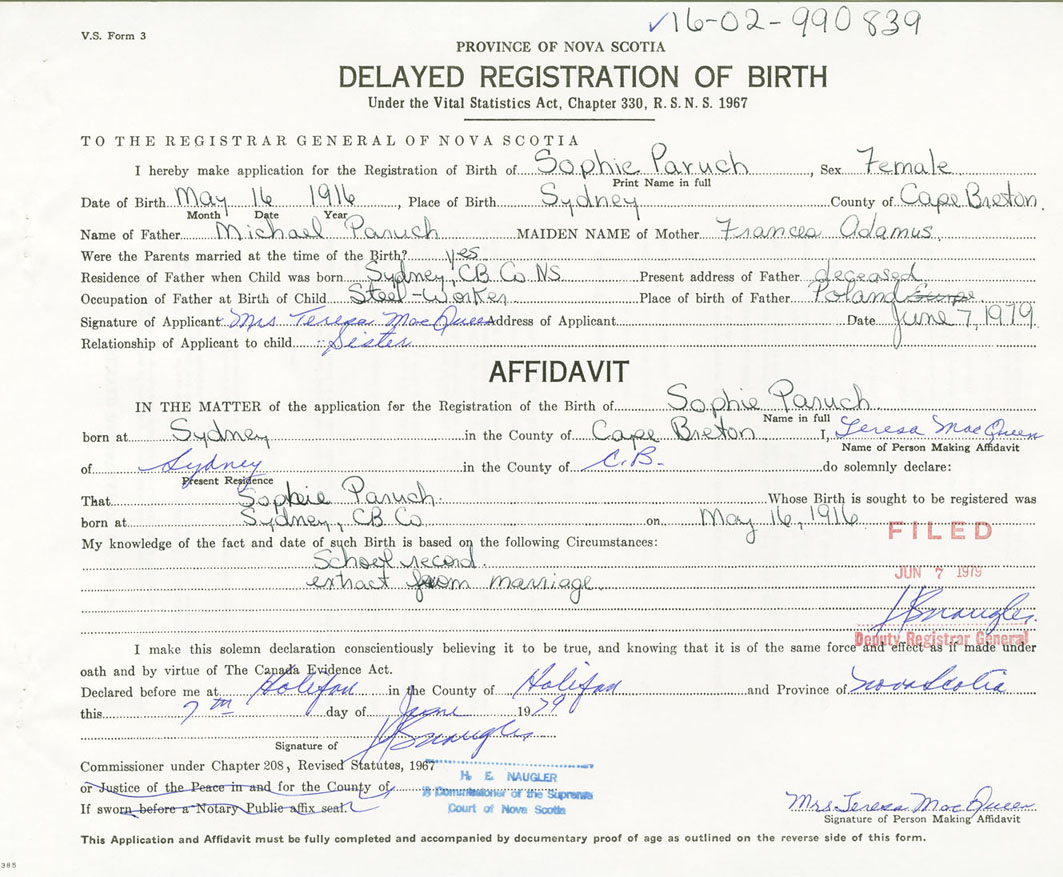 ✓16-02-990839
V.S. Form 3
PROVINCE OF NOVA SCOTIA
DELAYED REGISTRATION OF BIRTH
Under the Vital Statistics Act, Chapter 330, R. S. N. S. 1967
TO THE REGISTRAR GENERAL OF NOVA SCOTIA
I hereby make application for the Registration of Birth of Sophie Paruch, Sex Female
Print Name in full
Date of Birth May 16 1916, Place of Birth Sydney County of Cape Breton.
Month Date Year
Name of Father Michael Paruch MAIDEN NAME of Mother Frances Adamus.
Were the Parents married at the time of the Birth? yes
Residence of Father when Child was born Sydney, CB Co. NS Present address of Father deceased
Occupation of Father at Birth of Child Steel-Worker Place of birth of Father Poland Europe
Signature of Applicant Mrs Teresa MacQueen Address of Applicant Date June 7, 1979.
Relationship of Applicant to child Sister
AFFIDAVIT
IN THE MATTER of the application for the Registration of the Birth of Sophie Paruch
Name in full
born at Sydney in the County of Cape Breton I, Teresa MacQueen
Name of Person Making Affidavit
of Sydney in the County of C.B. do solemnly declare:
Present Residence
That Sophie Paruch. Whose Birth is sought to be registered was
born at Sydney, CB Co on May 16, 1916
FILED
My knowledge of the fact and date of such Birth is based on the following Circumstances:
School record.
JUN 7 1979
extract from marriage
HENaugler
Deputy Registrar General
I make this solemn declaration conscientiously believing it to be true, and knowing that it is of the same force and effect as if made under
oath and by virtue of The Canada Evidence Act.
Declared before me at Halifax in the County of Halifax and Province of Nova Scotia
this 7th day of June 1979
Signature of HENaugler
Commissioner under Chapter 208, Revised Statutes, 1967
H. E. NAUGLER
or Justice of the Peace in and for the County of
A Commissioner of the Supreme
If sworn before a Notary Public affix seal.
Court of Nova Scotia
Mrs. Teresa MacQueen
Signature of Person Making Affidavit
This Application and Affidavit must be fully completed and accompanied by documentary proof of age as outlined on the reverse side of this form.
385